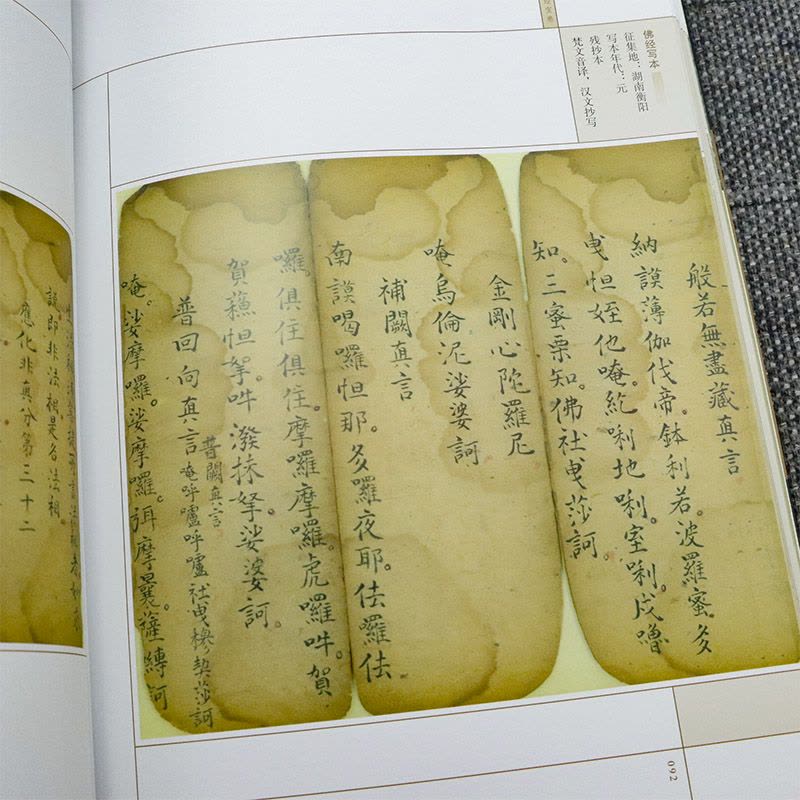 佛经写本
征集地：湖南衡阳
写本年代：元
残抄本
梵文音译，汉文抄写
般若無盡藏真言
納謨薄伽伐帝。鉢利若。波羅蜜多
曳怛姪他唵紇唎地唎。室唎。戍嚕
知。三蜜栗知。佛社曳莎訶。
金剛心陀羅尼
唵烏倫泥娑婆訶
補闕真言
南謨喝囉怛那。多羅夜耶。佉羅佉
囉。俱住俱住。摩囉摩囉。虎囉吽。賀
賀蘓怛拏。吽潑抹拏。娑婆訶。
普回向真言
普闕真言
唵呼嚧呼嚧社曳穆契莎訶
唵。娑摩囉。娑摩囉。弭摩曩薩縛訶
說即非法相是名法相。
應化非真分第三十二
092